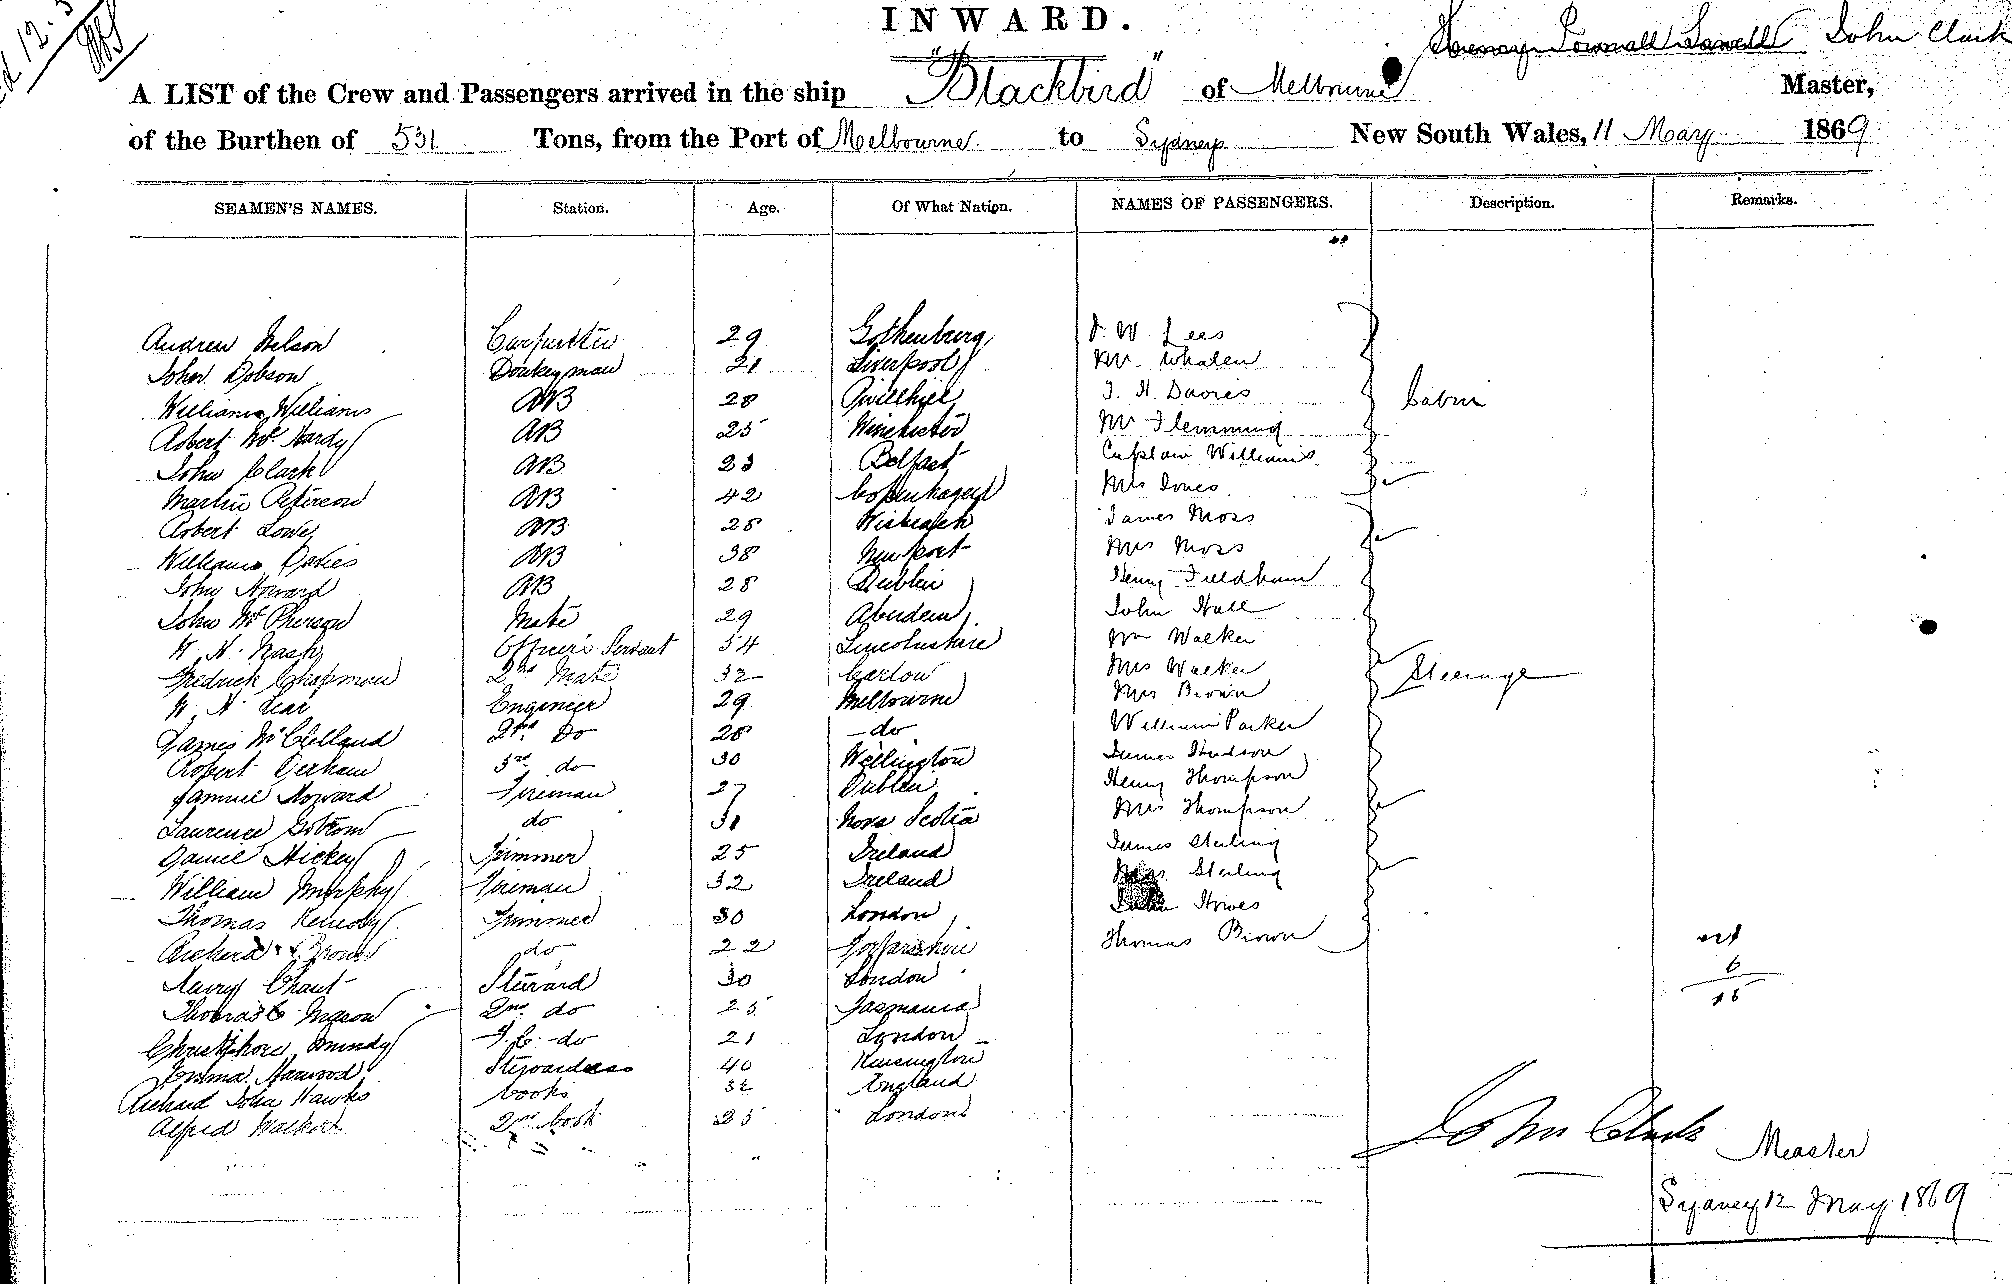 INWARD.
John Clark
A LIST of the Crew and Passengers arrived in the ship "Blackbird" of Melbourne Master,
of the Burthen of 531 Tons, from the Port of Melbourne to Sydney New South Wales, 11 May 1869
SEAMEN'S NAMES. Station. Age. Of What Nation. NAMES OF PASSENGERS. Description. Remarks.
Andrew Nelson Carpenter 29 Gothenburg J. W. Lees
John Dobson Donkeyman 21 Liverpool Mr Whalen
Williams Williams AB 28 T. H. Davies Cabin
Robert McHardy AB 25 Winchester Mr Flemming
John Clark AB 23 Belfast Captain Williams
Martin Peterson AB 42 Copenhagen Mrs Jones
Robert Lowe AB 28 Wisbeach James Moss
William Davies AB 38 Newport Mrs Moss
John Howard AB 28 Dublin Henry Fieldham
John McPherson Mate 29 Aberdeen John Hall
W. H. Nash Officer's Servant 54 Lincolnshire Wm Walker
Fredrick Chapman 2nd Mate 32 Carlow Mrs Walker Steerage
W. H. Lear Engineer 29 Melbourne Mrs Brown
James McClelland 2nd Do 28 do William Parker
Robert Derham 3rd do 30 Wellington James Hudson
Samuel Howard Fireman 27 Dublin Henry Thompson
Laurence do 31 Nova Scotia Mrs Thompson
Daniel Hickey Trimmer 25 Ireland James Sterling
William Murphy Fireman 32 Ireland Mrs Sterling
Thomas Kennedy Trimmer 30 London Howes
Brown do 22 Forfarshire Thomas Brown
Chant Steward 30 London 6
Thomas C Mason 2nd do 25 Tasmania 15
Mundy F. C. do 21 London
Emma Harwood Stewardess 40 Kensington
Richard John Hawks Cooks 32 England
Alfred 2nd Cook 25 London
John Clark Master
Sydney 12 May 1869